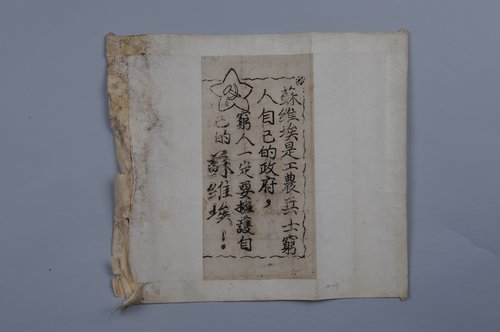 蘇維埃是工農兵士窮
人自己的政府，
窮人一定要擁護自
己的蘇維埃！